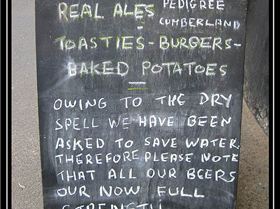 REAL ALES PEDIGREE
CUMBERLAND
TOASTIES - BURGERS -
BAKED POTATOES
OWING TO THE DRY
SPELL WE HAVE BEEN
ASKED TO SAVE WATER.
THEREFORE PLEASE NOTE
THAT ALL OUR BEERS
OUR NOW FULL
STRENGTH